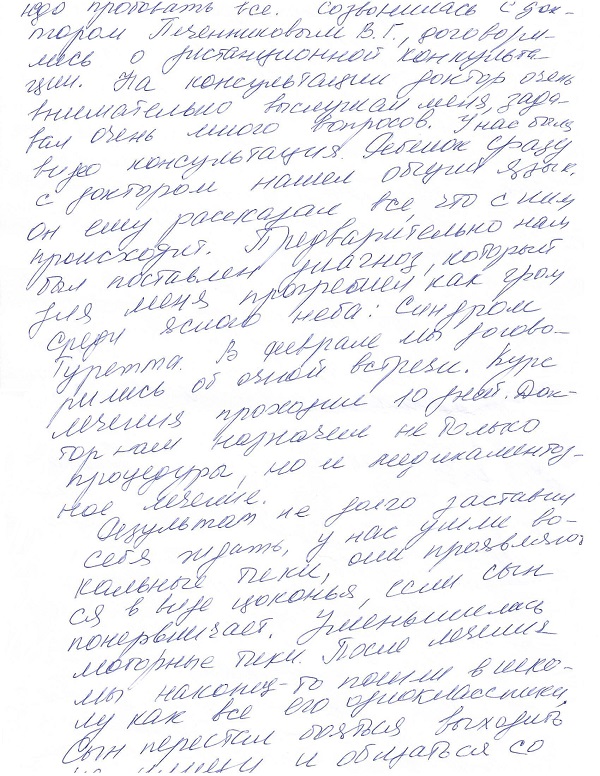 надо пробовать все. созвонилась с док-
тором Печенниковым В.Г., договори-
лись о дистанционной консульта-
ции. На консультации доктор очень
внимательно выслушал меня, зада-
вал очень много вопросов. У нас была
видео консультация. Ребенок сразу
с доктором нашел общий язык.
Он ему рассказал все, что с ним
происходит. Предварительно нам
был поставлен диагноз, который
для меня прогремел как гром
среди ясного неба: Синдром
Туретта. В феврале мы догово-
рились об очной встречи. Курс
лечения проходил 10 дней. Док-
тор нам назначил не только
процедура, но и медикаментоз-
ное лечение.
Результат не долго заставил
себя ждать, у нас ушли во-
кальные тики, они проявляло
ся в виде цоконья, если сын
понервничает. Уменьшились
моторные тики. После лечения
мы наконец-то пошли в шко-
лу как все его одноклассники.
Сын перестал бояться выходить
на улицу и общаться со